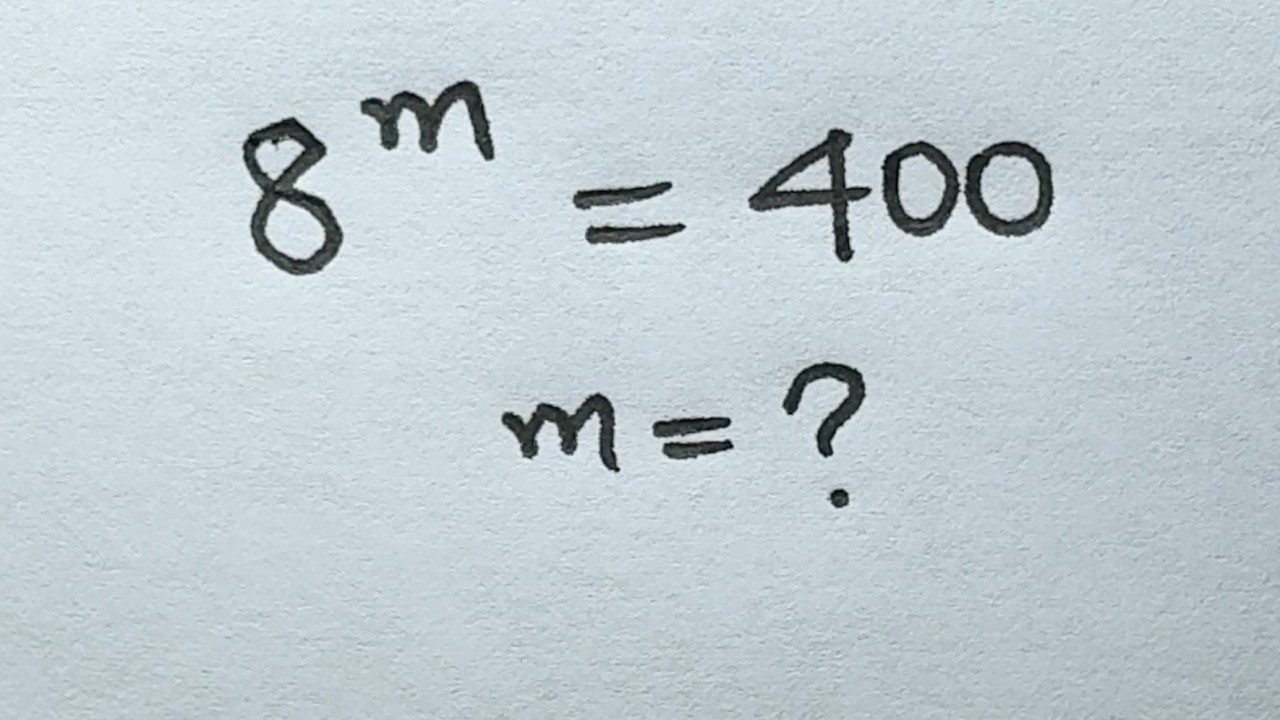 8^m = 400
m = ?